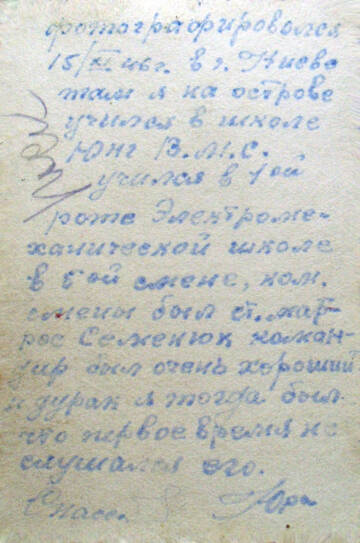 фотографировался
15/XI 46г. в г. Киеве
там я на острове
учился в школе
Юнг В.М.С.
учился в 1ой
роте Электроме-
ханической школе
в 5ой смене, ком.
смены был ст. мат-
рос Семенюк коман-
дир был очень хороший
и дурак я тогда был
что первое время не
слушался его.
Юра